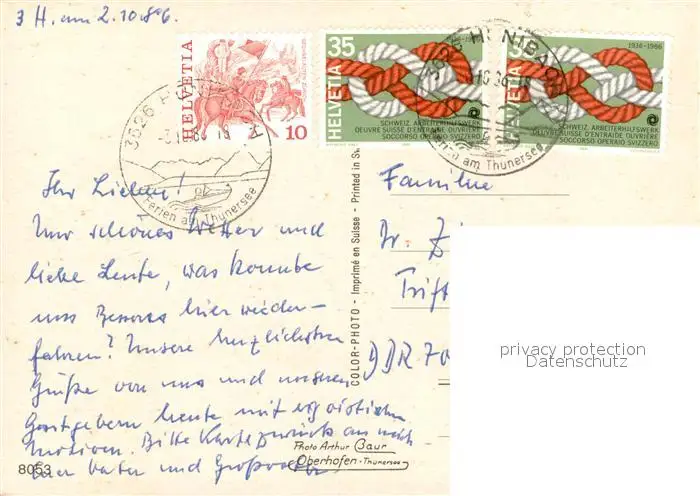 3 H. am 2.10.86.
HELVETIA
10
35
1936-1986
HELVETIA
SCHWEIZ. ARBEITERHILFSWERK
OEUVRE SUISSE D'ENTRAIDE OUVRIÈRE
SOCCORSO OPERAIO SVIZZERO
35
1936-1986
HELVETIA
SCHWEIZ. ARBEITERHILFSWERK
OEUVRE SUISSE D'ENTRAIDE OUVRIÈRE
SOCCORSO OPERAIO SVIZZERO
3626 HÜNIBACH
Ferien am Thunersee
3626 HÜNIBACH
Ferien am Thunersee
Ihr Lieben!
Nur schönes Wetter und
liebe Leute, was konnte
uns Besseres hier wieder-
fahren? Unsere herzlichsten
Grüße von uns und unseren
Gastgebern heute mit
Bitte Karte zurück an mich
Vater und
COLOR-PHOTO - Imprimé en Suisse - Printed in
Familie
Dr.
Trift
DDR 70
privacy protection
Datenschutz
Photo Arthur Baur
Oberhofen - Thunersee
8053